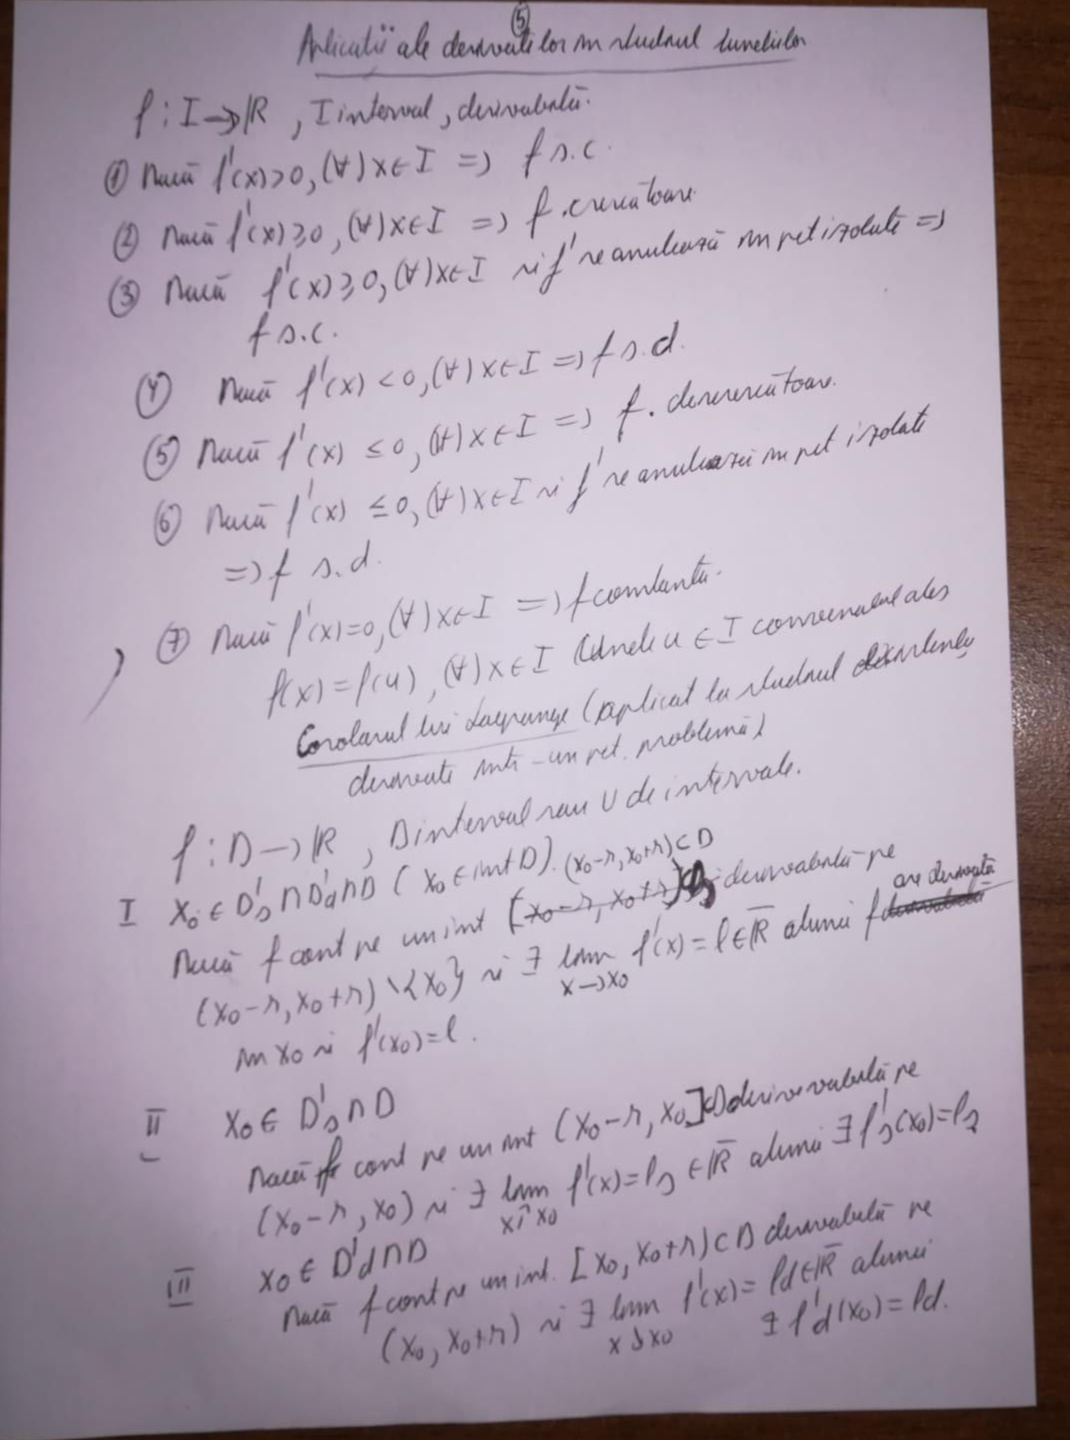 5
Aplicații ale derivatelor în studiul funcțiilor
f : I → ℝ , I interval , derivabilă.
① Dacă f'(x)>0, (∀) x ∈ I => f s.c.
② Dacă f'(x) ≥ 0, (∀) x ∈ I => f. crescătoare.
③ Dacă f'(x) ≥ 0, (∀) x ∈ I și f' se anulează în pct izolate =>
f s.c.
④ Dacă f'(x) < 0, (∀) x ∈ I => f s.d.
⑤ Dacă f'(x) ≤ 0, (∀) x ∈ I => f. descrescătoare.
⑥ Dacă f'(x) ≤ 0, (∀) x ∈ I și f' se anulează în pct izolate
=> f s.d.
⑦ Dacă f'(x)=0, (∀) x ∈ I => f constantă.
f(x) = f(u), (∀) x ∈ I (unde u ∈ I convenabil ales
Corolarul lui Lagrange (aplicat la studiul existenței
derivatei într-un pct. problemă)
f : D → ℝ , D interval sau ∪ de intervale.
I x₀ ∈ D's ∩ D'd ∩ D (x₀ ∈ int D). (x₀-r, x₀+r) ⊂ D
Dacă f cont pe un int (x₀-r, x₀+r) derivabilă pe
(x₀-r, x₀+r) \ {x₀} și ∃ lim x→x₀ f'(x) = l ∈ ℝ̅ atunci f are derivată
în x₀ și f'(x₀) = l.
II x₀ ∈ D's ∩ D
Dacă f cont pe un int (x₀-r, x₀] ⊂ D derivabilă pe
(x₀-r, x₀) și ∃ lim x↗x₀ f'(x) = ls ∈ ℝ̅ atunci ∃ f's(x₀) = ls
III x₀ ∈ D'd ∩ D
Dacă f cont pe un int. [x₀, x₀+r) ⊂ D derivabilă pe
(x₀, x₀+r) și ∃ lim x↘x₀ f'(x) = ld ∈ ℝ̅ atunci
∃ f'd(x₀) = ld.